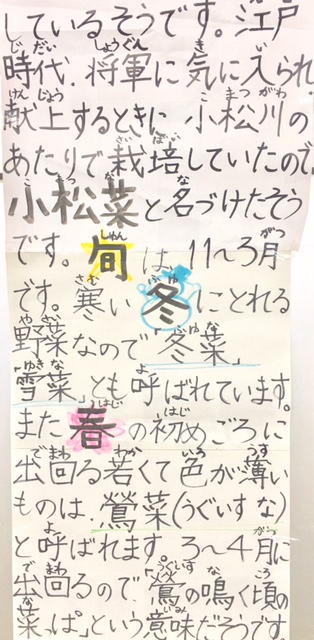 しているそうです。江戸
時代、将軍に気に入られ
献上するときに小松川の
あたりで栽培していたので
小松菜と名づけたそう
です。旬は、11〜3月
です。寒い冬にとれる
野菜なので「冬菜」
雪菜」とも呼ばれています。
また春の初めごろに
出回る若くて色が薄い
ものは、鶯菜(うぐいすな)
と呼ばれます。3〜4月に
出回るので、「鶯の鳴く頃の
菜っぱ」という意味だそうです